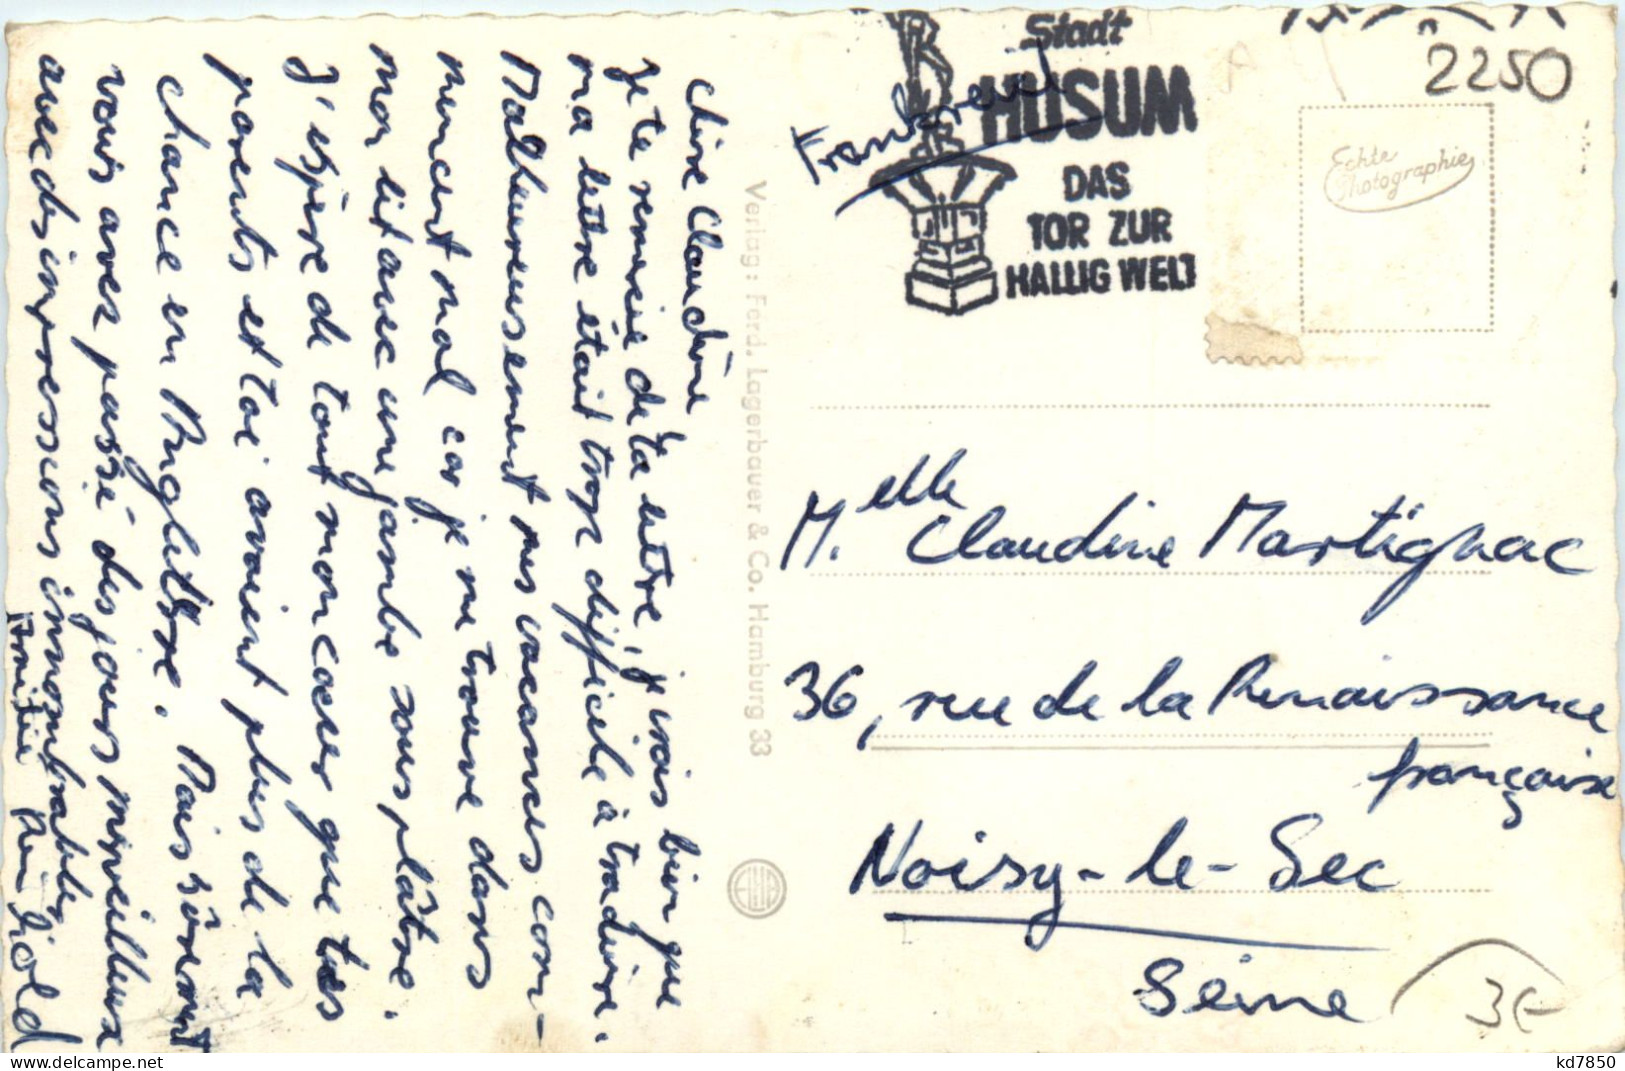 Chère Claudine
Je te remercie de ta lettre, je vois bien que
ma lettre était trop difficile à traduire.
Malheureusement mes vacances com-
mencent mal car je me trouve dans
mon lit avec une jambe sous plâtre.
J'espère de tout mon cœur que tes
parents et toi avaient plus de la
chance en Angleterre. Mais sûrement
vous avez passé des jours merveilleux
avec des impressions innombrables
Amitié
Verlag: Ferd. Lagerbauer & Co. Hamburg 33
Stadt
HUSUM
DAS
TOR ZUR
HALLIG WELT
Frankreich
2250
Echte
Photographie
M.elle Claudine Martignac
36, rue de la Renaissance
française
Noisy-le-Sec
Seine
3€
kd7850